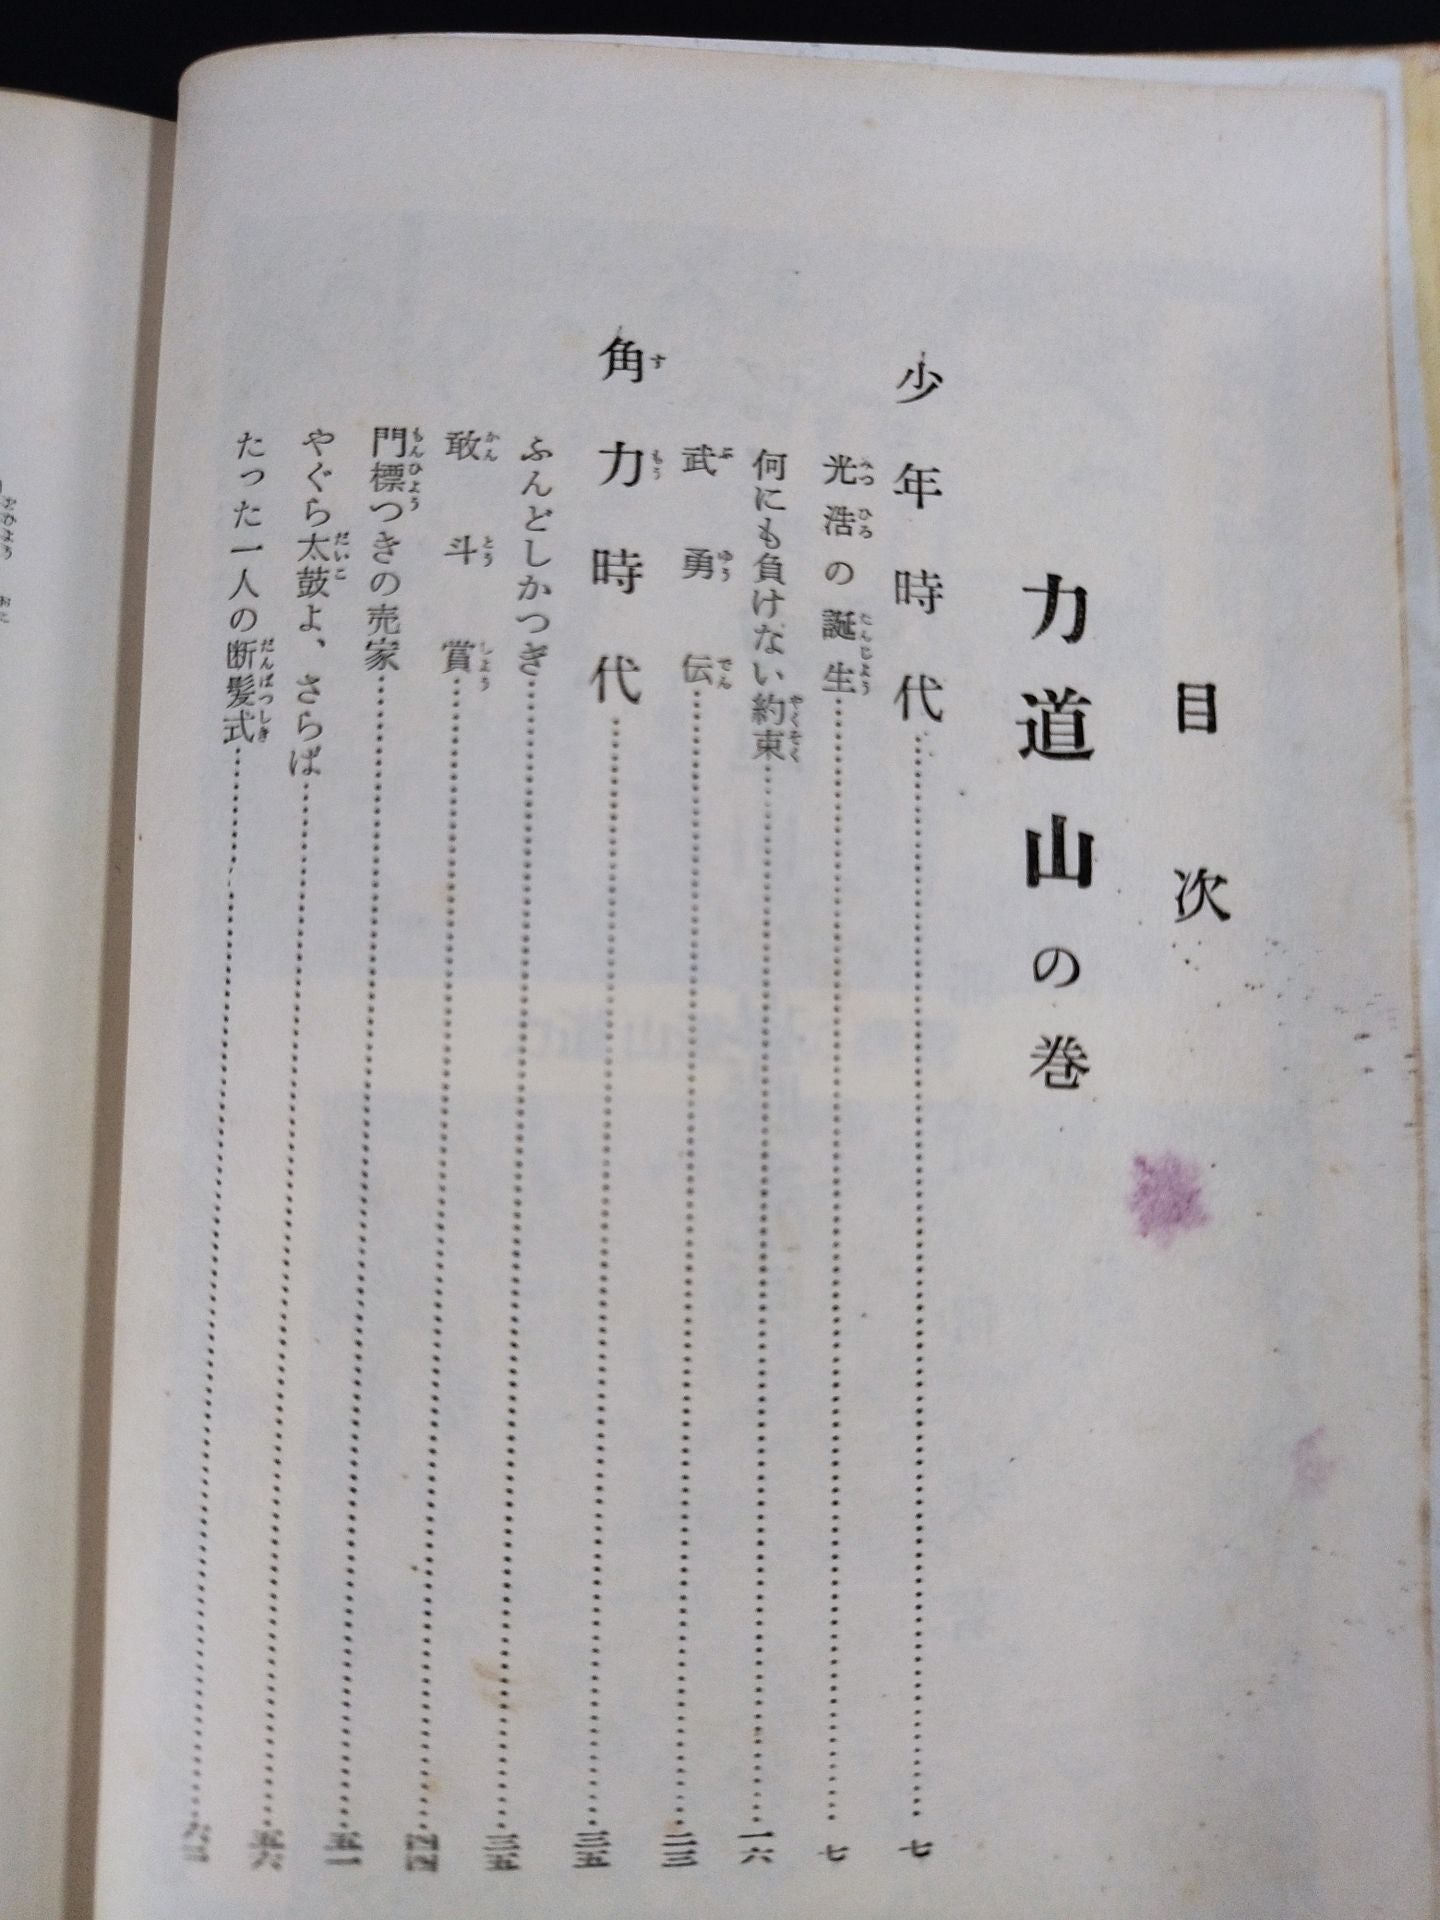 目次
力道山の巻
少年時代……七
光浩の誕生……七
何にも負けない約束……一六
武勇伝……二三
角力時代……三五
ふんどしかつぎ……三五
敢斗賞……四四
門標つきの売家……五一
やぐら太鼓よ、さらば……五六
たった一人の断髪式……